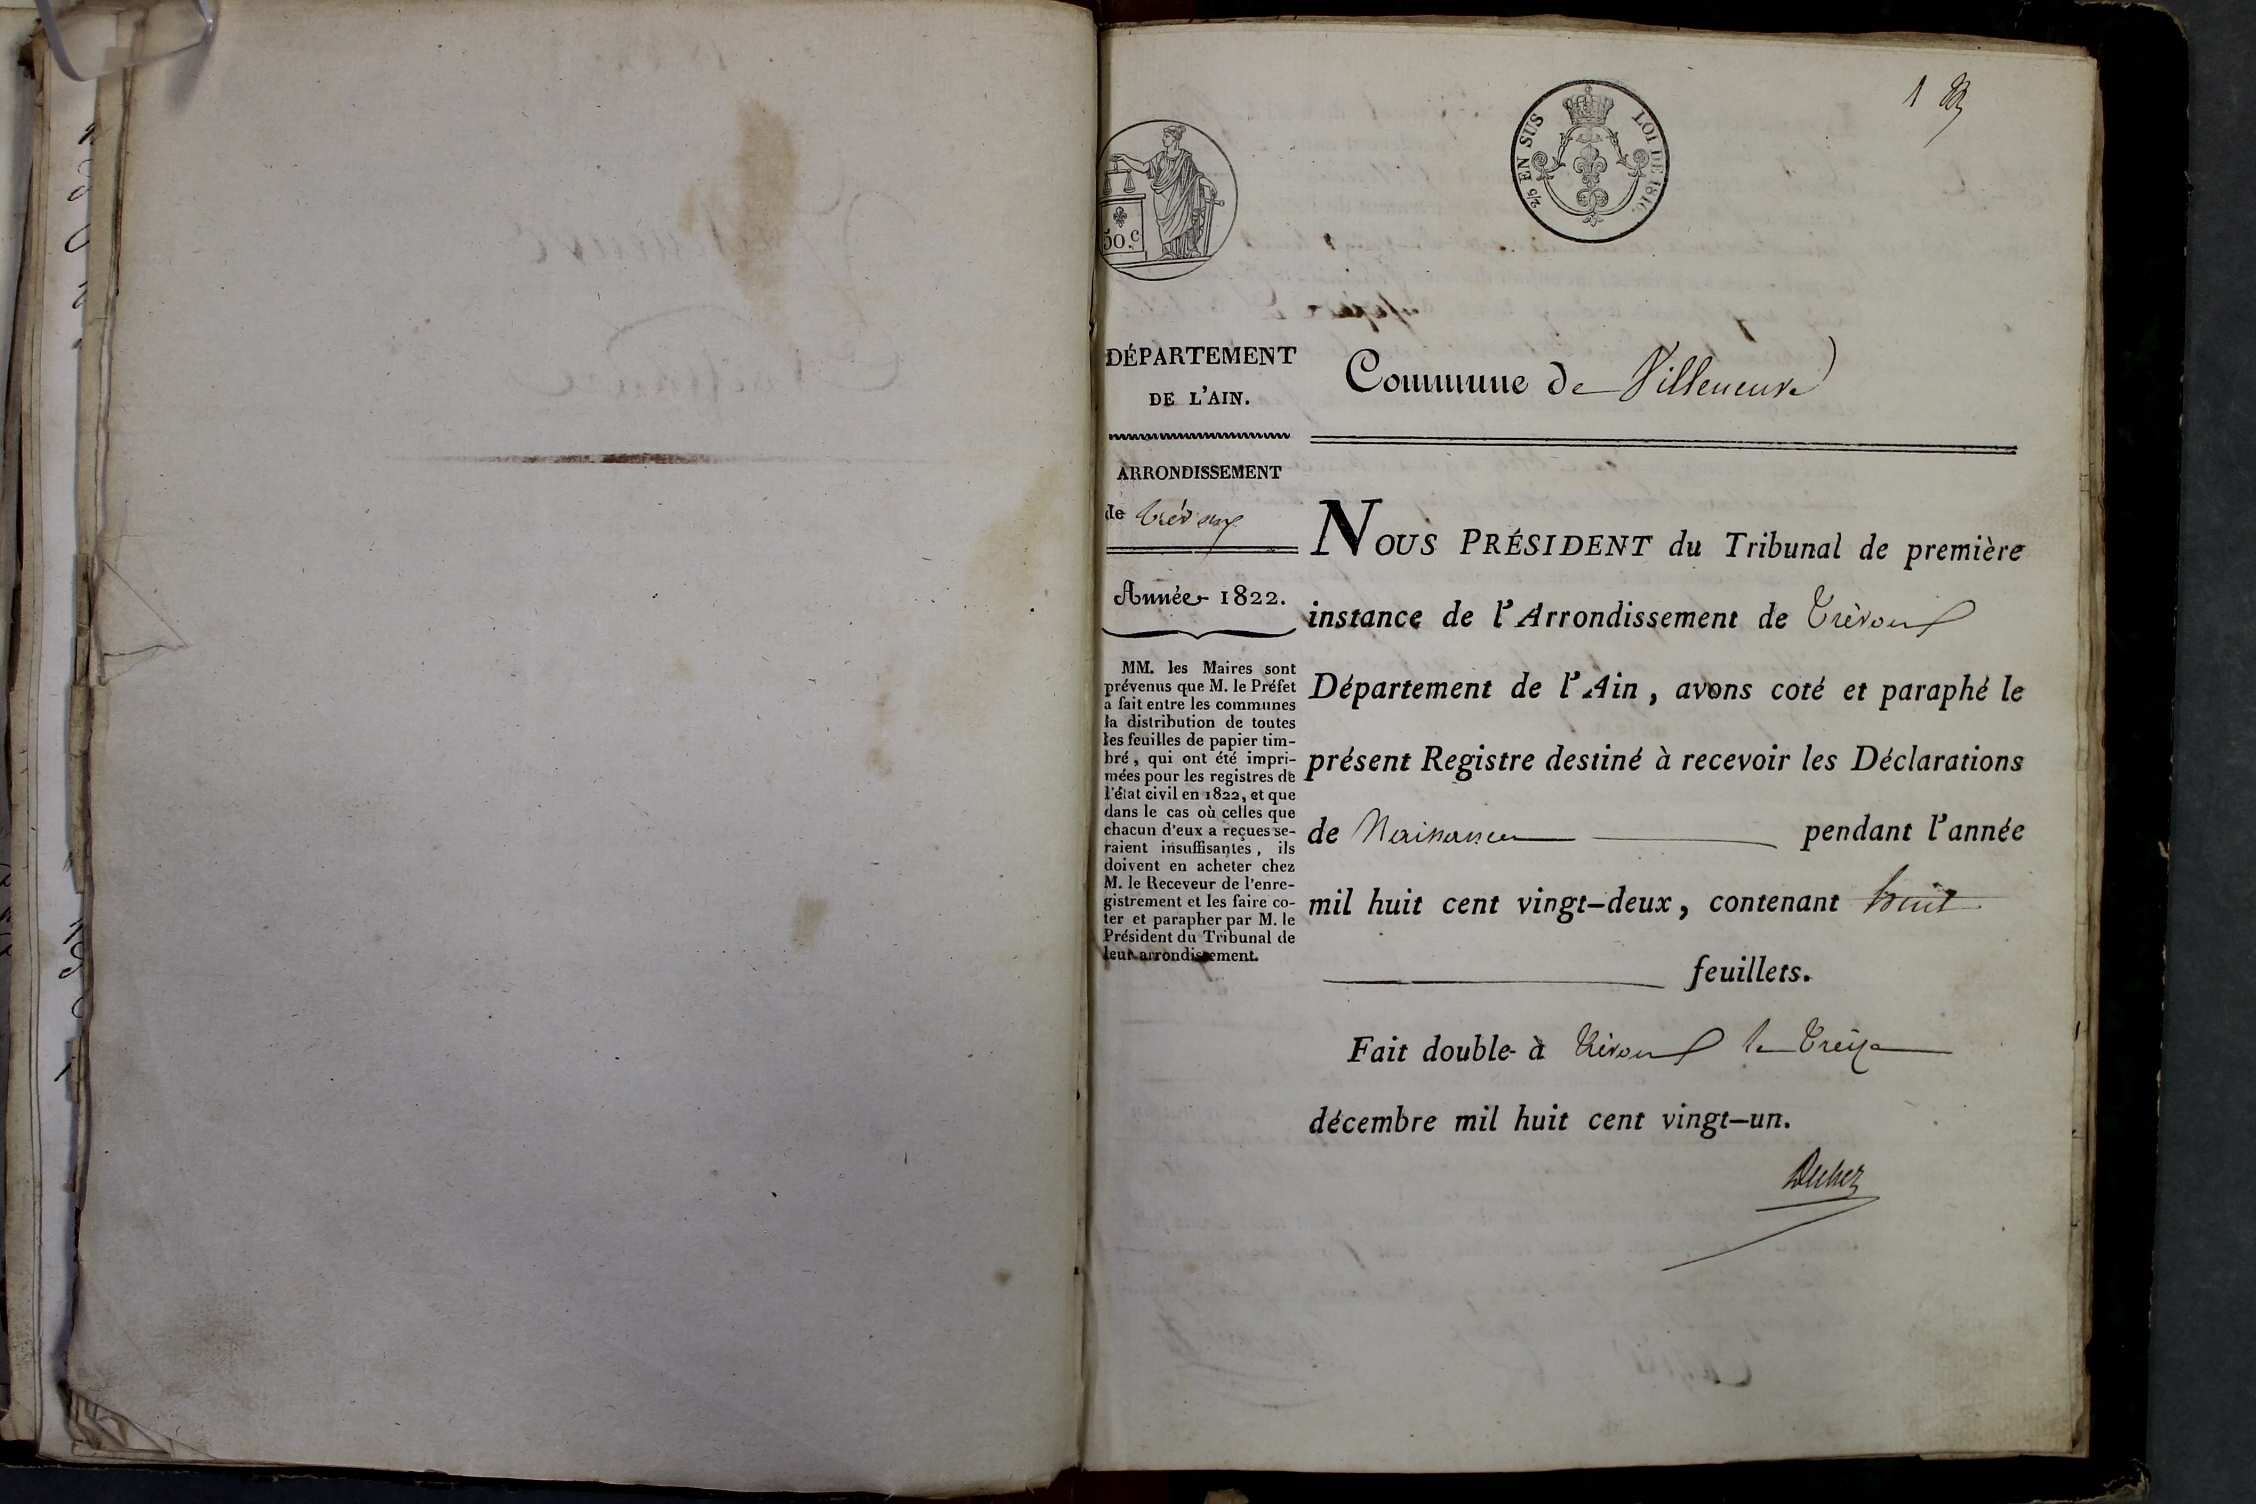 1
2/5 EN SUS
LOI DE 1816.
50 c
DÉPARTEMENT
DE L'AIN.
ARRONDISSEMENT
de Trévoux
Année 1822.
MM. les Maires sont
prévenus que M. le Préfet
a fait entre les communes
la distribution de toutes
les feuilles de papier tim-
bré, qui ont été impri-
mées pour les registres de
l'état civil en 1822, et que
dans le cas où celles que
chacun d'eux a reçues se-
raient insuffisantes, ils
doivent en acheter chez
M. le Receveur de l'enre-
gistrement et les faire co-
ter et parapher par M. le
Président du Tribunal de
leur arrondissement.
Commune de Villeneuve
NOUS PRÉSIDENT du Tribunal de première
instance de l'Arrondissement de Trévoux
Département de l'Ain, avons coté et paraphé le
présent Registre destiné à recevoir les Déclarations
de Naissances pendant l'année
mil huit cent vingt-deux, contenant huit
feuillets.
Fait double à Trévoux le treize
décembre mil huit cent vingt-un.